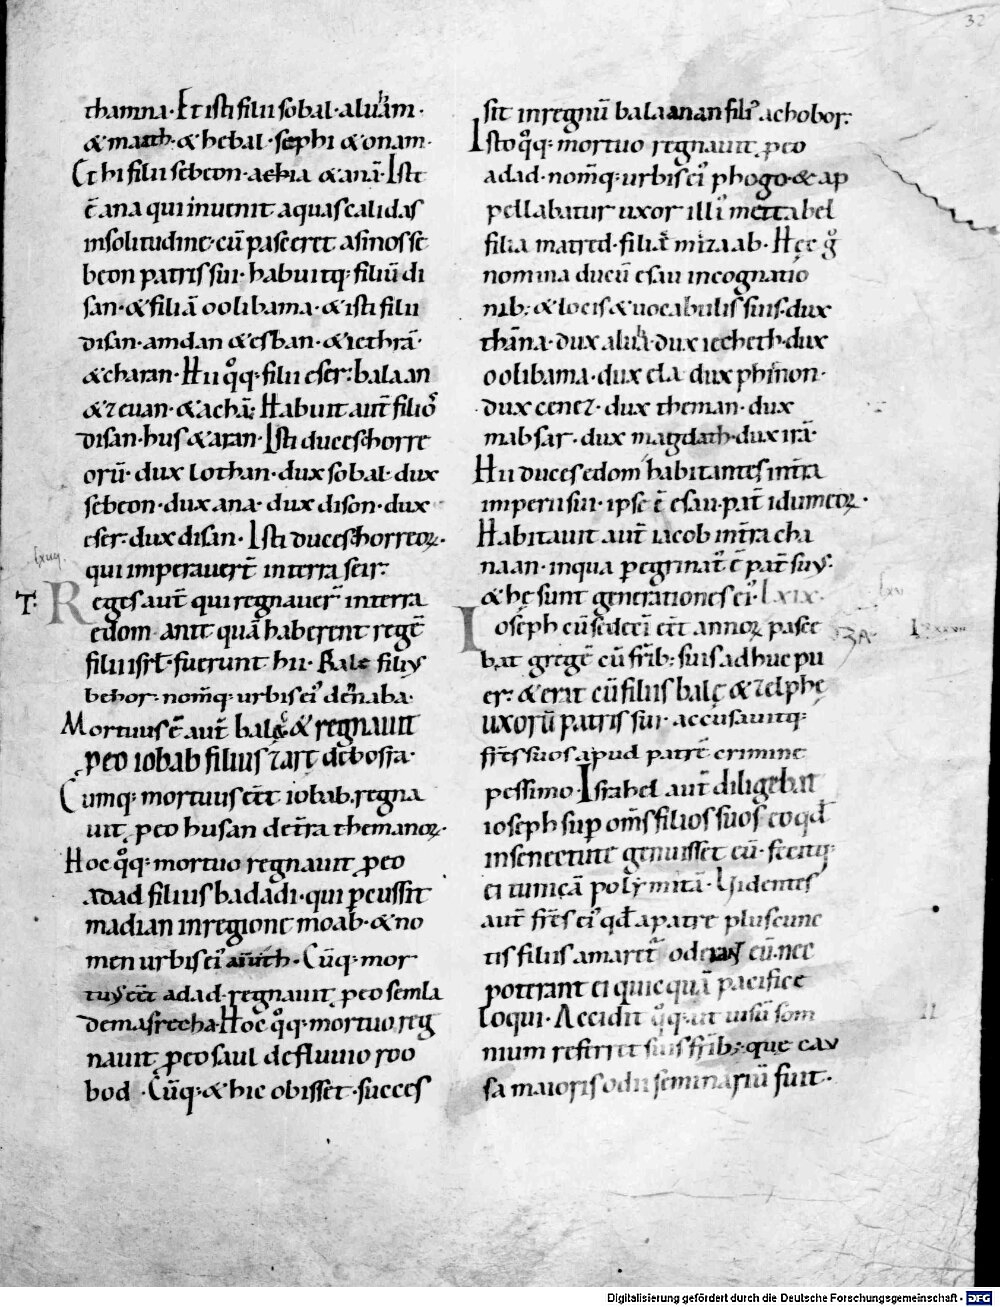 32
thamna· Et isti filii sobal· aluam·
& manh& hebal· sephi & onam·
Et hi filii sebeon· achia & anā· Iste
ē ana qui inuenit aquas calidas
in solitudine· cū pasceret asinos se
beon patris sui· habuitq; filiū di
san· & filiā oolibama· & isti filii
disan· amdan & esban· & iethrā·
& charan· Hii qͦq; filii eser· balaan
& zeuan· & achā; Habuit aut̄ filiōͦ
disan· hus & aran· Isti duces horre
orū· dux lothan· dux sobal· dux
sebeon· dux ana· dux dison· dux
eser· dux disan· Isti duces horreoꝝ·
qui imperauert̄ in terra seir·
Reges aut̄ qui regnauer̄ in terra
edom· ante quā haberent regē
filii isrl̄· fuerunt hii· Bale filiꝰ
behor· nom̄q; urbis eiꝰ denaba·
Mortuus ē aut̄ balę & regnauit
ꝓ eo iobab filius zarę de bosra·
Cumq; mortuus eēt iobab· regna
uit ꝓ eo husan de tr̄ra themanoꝝ·
Hoc qͦq; mortuo regnauit ꝓ eo
adad filius badadi· qui ꝑcussit
madian in regione moab· & no
men urbis eiꝰ auith· Cūq; mor
tuꝰ eēt adad· regnauit ꝓ eo semla
de masrecha· Hoc qͦq; mortuo reg
nauit ꝓ eo saul de fluuio roo
bod· Cūq; & hic obisset· succes
sit in regnū balaanan filiꝰ achobor·
Isto qͦq; mortuo regnauit ꝓ eo
adad· nom̄q; urbis eiꝰ phogo· & ap
pellabatur uxor illiꝰ mettabel
filia matred· filię mizaab· Hęc ḡ
nomina ducū esau in cognatio
nib; & locis & uocabulis suis· dux
thāna· dux alua· dux ietheth· dux
oolibama· dux ela· dux phinon·
dux cenez· dux theman· dux
mabsar· dux magdath· dux irā·
Hii duces edom habitantes in tr̄ra
imperii sui· ipse ē esau· pat̄ idumeoꝝ·
Habitauit aut̄ iacob in tr̄ra cha
naan· in qua ꝑegrinatꝰ ē pat̄ suꝰ·
& hę sunt generationes eiꝰ· lxix·
Ioseph cū sedeci eēt annoꝝ pasce
bat gregē cū fr̄ib; suis adhuc pu
er· & erat cū filiis balę & zelphę
uxorū patris sui· accusauitq;
fr̄es suos apud patrē crimine
pessimo· Israhel aut̄ diligebat
ioseph suꝑ om̄s filios suos eo qđ
in senectute genuisset eū· fecitq;
ei tunicā polymitā· Uidentes
aut̄ fr̄es eiꝰ qđ a patre plus cunc
tis filiis amaret̄ oderant eū· nec
poterant ei quicquā pacifice
loqui· Accidit qͦq; ut uisū som
nium referret suis fr̄ib; que cau
sa maioris odii seminariū fuit·
Digitalisierung gefördert durch die Deutsche Forschungsgemeinschaft - DFG